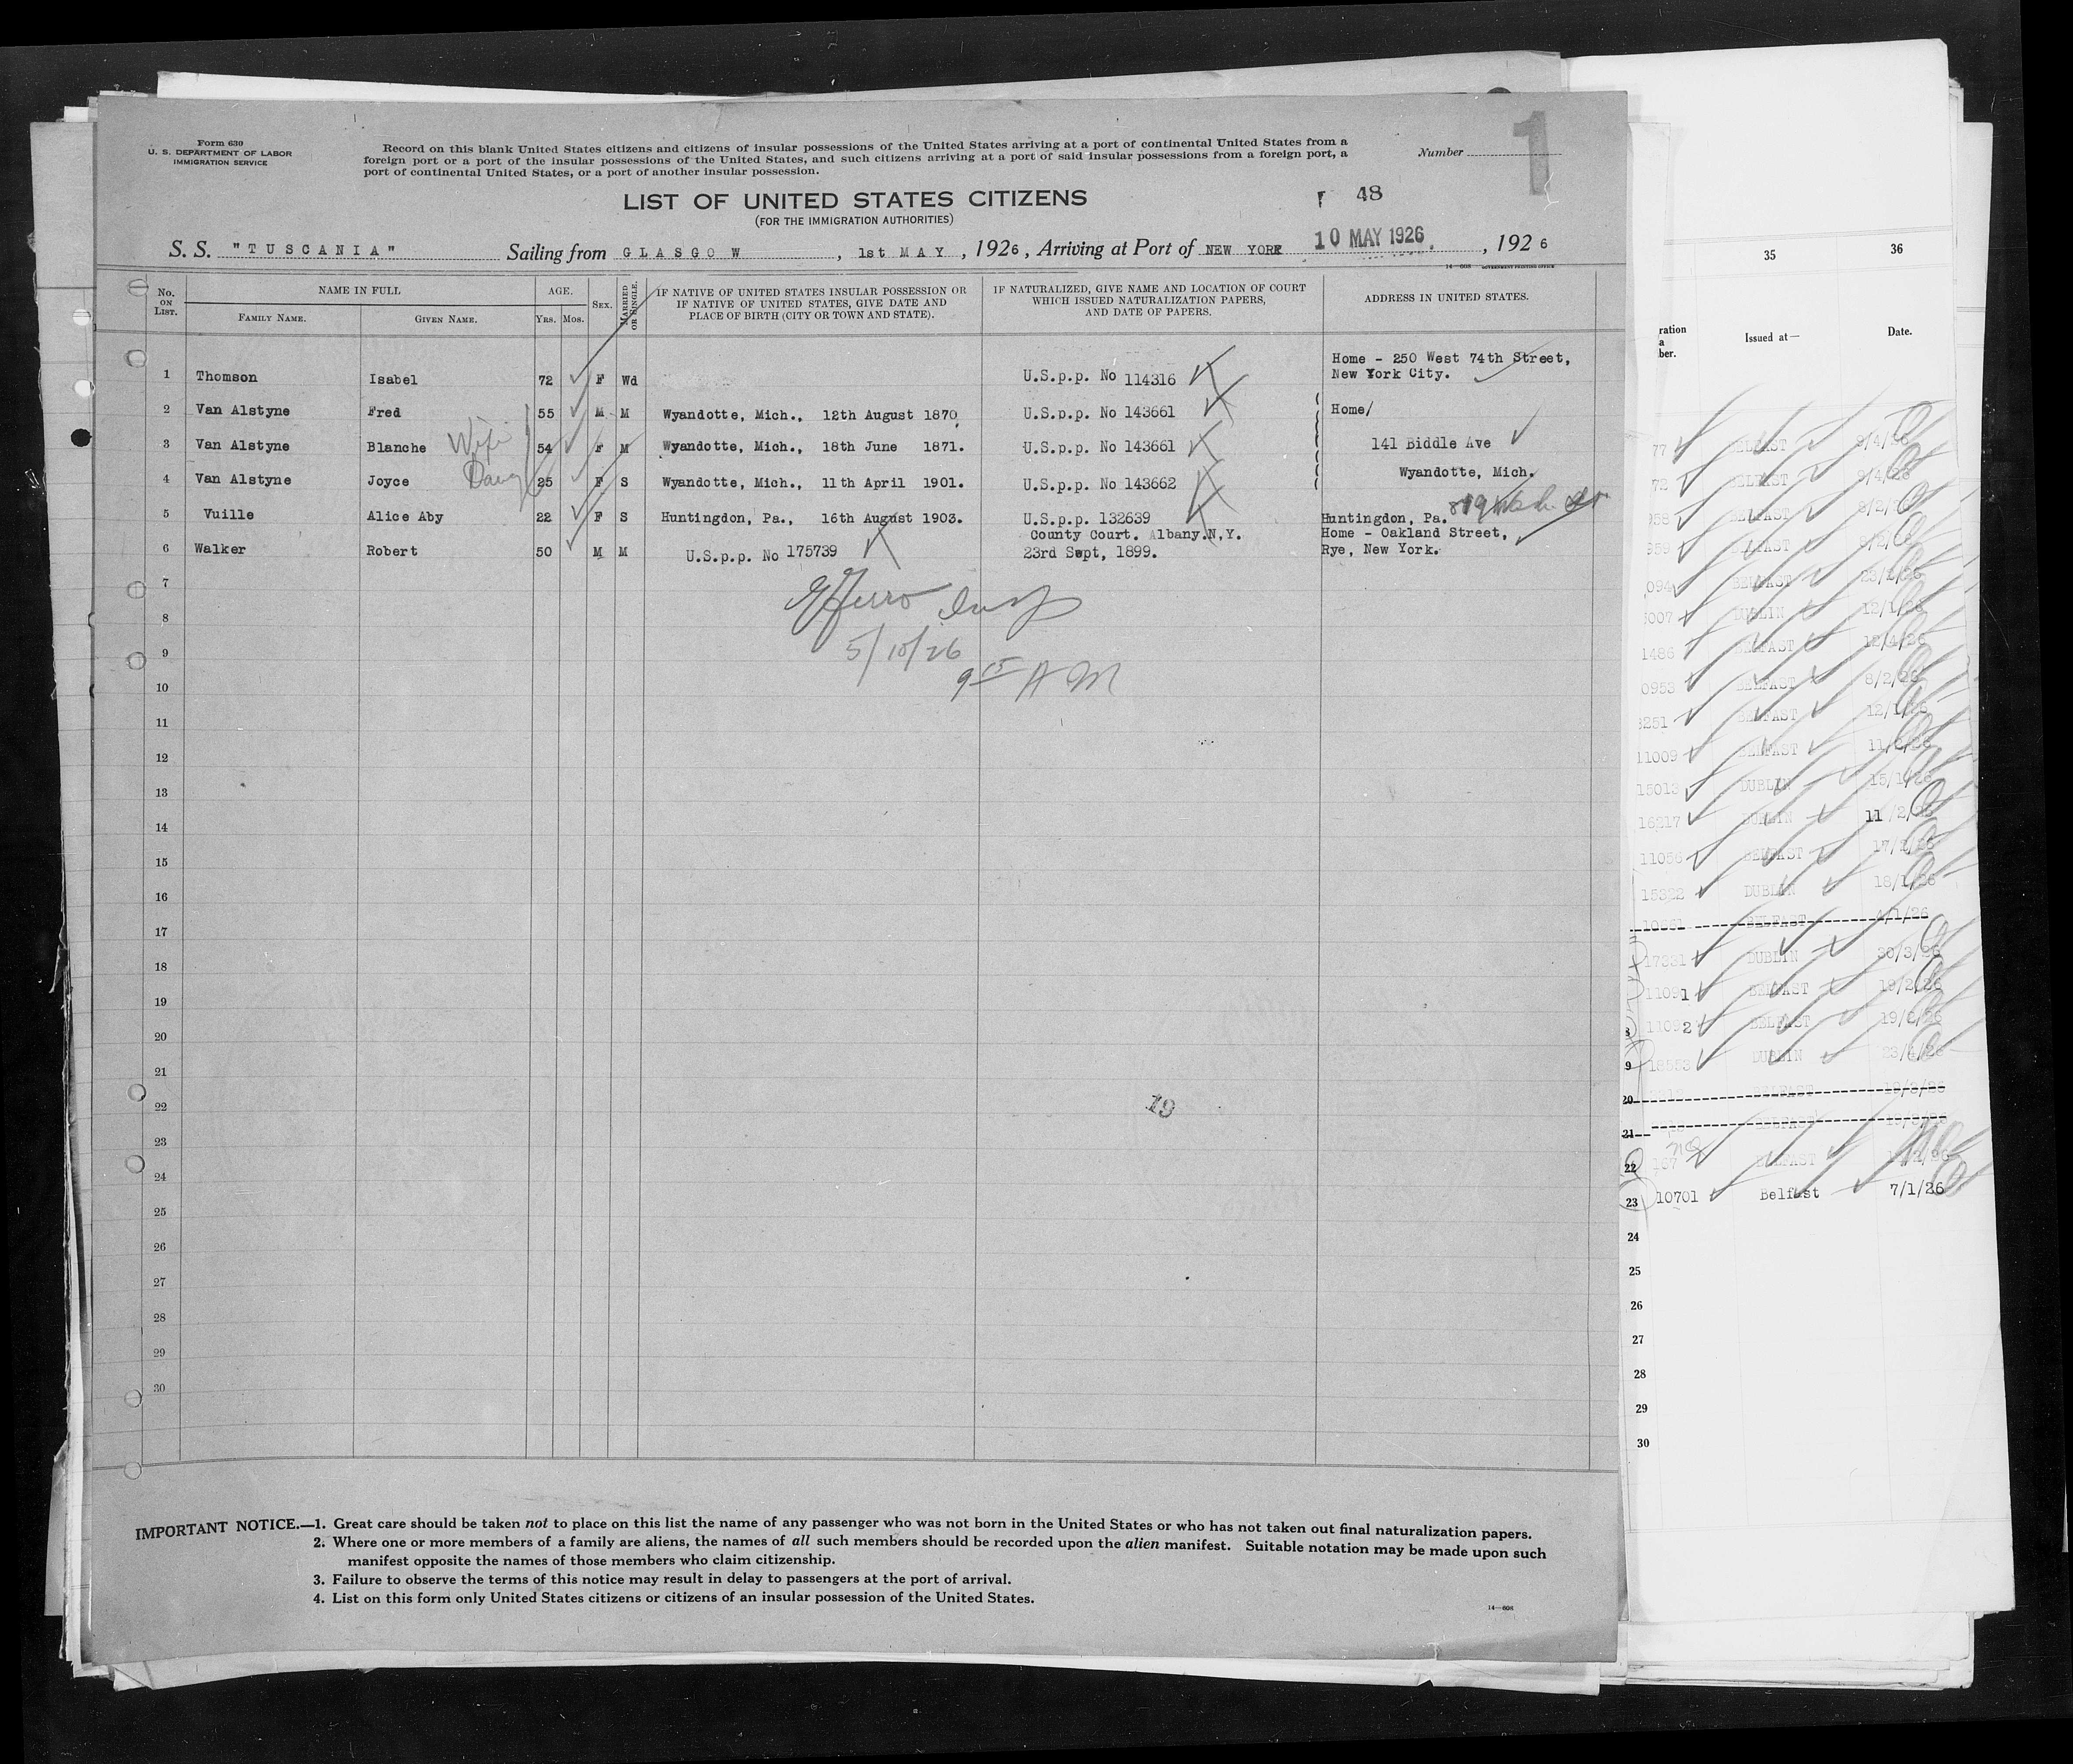 Form 630
U. S. DEPARTMENT OF LABOR
IMMIGRATION SERVICE
Record on this blank United States citizens and citizens of insular possessions of the United States arriving at a port of continental United States from a
foreign port or a port of the insular possessions of the United States, and such citizens arriving at a port of said insular possessions from a foreign port, a
port of continental United States, or a port of another insular possession.
Number
1
LIST OF UNITED STATES CITIZENS
(FOR THE IMMIGRATION AUTHORITIES)
48
S. S. "TUSCANIA" Sailing from GLASGOW, 1st MAY, 1926, Arriving at Port of NEW YORK 10 MAY 1926, 1926
14—608 GOVERNMENT PRINTING OFFICE
No. ON LIST. NAME IN FULL FAMILY NAME. GIVEN NAME. AGE. YRS. MOS. SEX. MARRIED OR SINGLE.
IF NATIVE OF UNITED STATES INSULAR POSSESSION OR
IF NATIVE OF UNITED STATES, GIVE DATE AND
PLACE OF BIRTH (CITY OR TOWN AND STATE).
IF NATURALIZED, GIVE NAME AND LOCATION OF COURT
WHICH ISSUED NATURALIZATION PAPERS,
AND DATE OF PAPERS.
ADDRESS IN UNITED STATES.
Home - 250 West 74th Street,
1 Thomson Isabel 72 F Wd U.S.p.p. No 114316 New York City.
2 Van Alstyne Fred 55 M M Wyandotte, Mich., 12th August 1870. U.S.p.p. No 143661 Home/
3 Van Alstyne Blanche Wife 54 F M Wyandotte, Mich., 18th June 1871. U.S.p.p. No 143661 141 Biddle Ave
4 Van Alstyne Joyce Daug 25 F S Wyandotte, Mich., 11th April 1901. U.S.p.p. No 143662 Wyandotte, Mich.
5 Vuille Alice Aby 22 F S Huntingdon, Pa., 16th August 1903. U.S.p.p. 132639 Huntingdon, Pa.
County Court. Albany.N,Y. Home - Oakland Street,
6 Walker Robert 50 M M U.S.p.p. No 175739 23rd Sept, 1899. Rye, New York.
7
8
5/10/26
9
9 15 AM
10
11
12
13
14
15
16
17
18
19
20
21
22
19
23
24
25
26
27
28
29
30
IMPORTANT NOTICE.—1. Great care should be taken not to place on this list the name of any passenger who was not born in the United States or who has not taken out final naturalization papers.
2. Where one or more members of a family are aliens, the names of all such members should be recorded upon the alien manifest. Suitable notation may be made upon such
manifest opposite the names of those members who claim citizenship.
3. Failure to observe the terms of this notice may result in delay to passengers at the port of arrival.
4. List on this form only United States citizens or citizens of an insular possession of the United States.
14—608
35 36
Issued at— Date.
77 BELFAST 9/4/26
72 BELFAST 9/4/26
958 BELFAST 8/2/26
959 BELFAST 8/2/26
094 BELFAST
007 DUBLIN 12/1/26
1486 BELFAST 12/4/26
0953 BELFAST 8/2/26
3251 BELFAST 12/1/26
11009 BELFAST
15013 DUBLIN 15/1/26
16217 DUBLIN 11/2/26
11056 BELFAST 17/2/26
15322 DUBLIN 18/1/26
10661 BELFAST 4/1/26
17331 DUBLIN 30/3/26
11091 BELFAST 19/2/26
11092 BELFAST 19/2/26
9 18553 DUBLIN 23/4/26
20 BELFAST
21 BELFAST
22 BELFAST
23 10701 Belfast 7/1/26
24
25
26
27
28
29
30